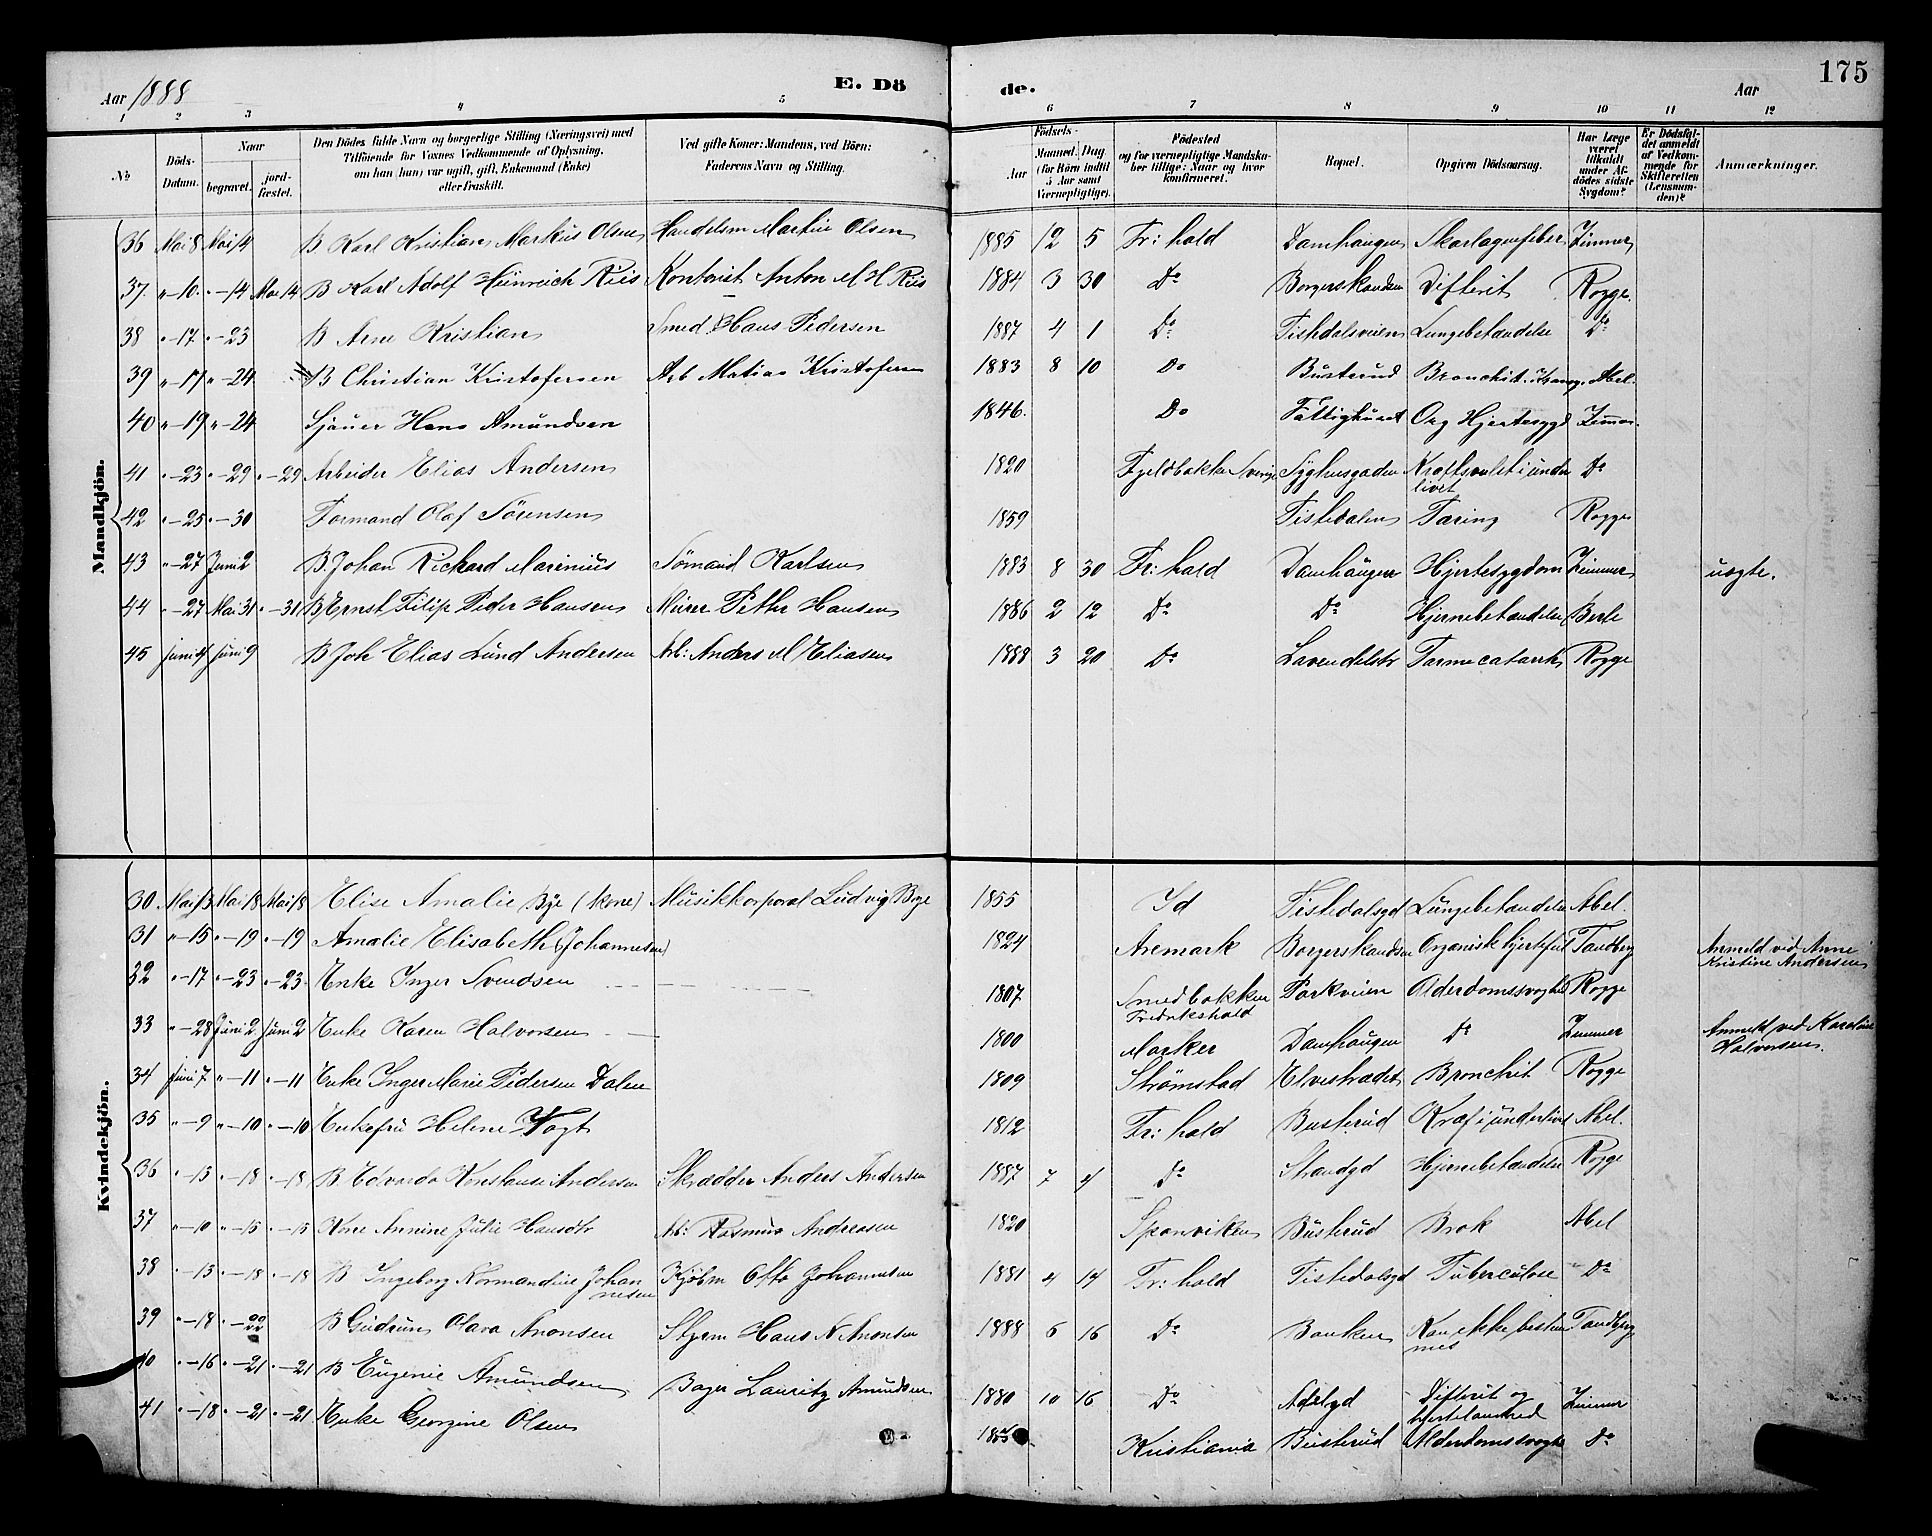 Aar 1888 E. Dö de. Aar 175
1 2 3 4 5 6 7 8 9 10 11 12
No Döds-Datum. Naar begravet. jord-fæstet. Den Dödes fulde Navn og borgerlige Stilling (Næringsvei) med Tilföiende for Voxnes Vedkommende af Oplysning, om han (hun) var ugift, gift, Enkemand (Enke) eller fraskilt. Ved gifte Koner: Mandens, ved Börn: Faderens Navn og Stilling. Födsels- Aar Maaned. Dag (for Börn indtil 5 Aar samt Værnepligtige). Födested og for værnepligtige Mandska-ber tillige: Naar og hvor konfirmeret. Bopæl. Opgiven Dödsaarsag. Har Læge været tilkaldt under Af-dödes sidste Sygdom? Er Dödsfal-det anmeldt af Vedkom-mende for Skifteretten (Lensman-den)? Anmærkninger.
Mandkjön.
36 Mai 8 Mai 14 B Karl Kristian Markus Olsen Handelsm Martin Olsen 1885 12 5 Fr:hald Damhaugen Skarlagensfeber Zimmer
37. " -10. " -14 Mai 14 B Karl Adolf Heinreich Riis Kontorist Anton M H Riis 1884 3 30 Do Borgerskandsen Difterit Rogge.
38 " -17 " -23 B Arne Kristian Smed Hans Pedersen 1887 4 1 Do Tistedalsveien Lungebetændelse Do
39 " -17 " -24 B Christian Kristofersen Arb Matias Kristofersen 1883 8 10 Do Busterud Bronchit. Abel.
40 " -19 " -24 Sjauer Hans Amundsen 1846. Do Fattighuset Org Hjertesygd Zimmer.
41 " -23 " -29 " -29 Arbeider Elias Andersen 1820 Fjeldbakka Sverige Syghusgaden Kræftsvulst i under livet Do
42 " -25 " -30 Formand Olaf Sörensen 1859 Tistedalen Tæring Rogge
43 " -27 Juni 2 B. Johan Rickard Marinius Sömand Karlsen 1883 8 30 Fr:hald Damhaugen Hjertesygdom Zimmer uægte.
44 " -27 Mai 31 " -31 B Ernst Filip Peder Hansen Murer Pether Hansen 1886 2 12 Do Do Hjernebetændelse Berle
45 Juni 4 Juni 9 B Joh Elias Lund Andersen Arb: Anders M Eliasen 1888 3 20 Do Lavendelstr Tarmecatarrh Rogge
Kvindekjön.
30. Mai 13 Mai 18 Mai 18 Elise Amalie Bye (Kone) Musikkorporal Ludvig Bye 1855 Id Tistedalsgd Lungebetændelse Abel.
31 " -15 " -19 " -19 Amalie Elisabeth (Johannesen) 1824 Aremark Borgerskandsen Organisk hjertefeil Tandberg Anmeld ved Anne Kristine Andersen
32 " -17 " -23 " -23 Enke Inger Svendsen 1807 Smedbakken Fredrikshald Parkveien Alderdomssvaghed Rogge
33 " -28 Juni 2. Juni 2 Enke Karen Halvorsen 1800 Marker Damhaugen Do Zimmer Anmeld ved Karoline Halvorsen.
34 Juni 7 " -11 " -11 Enke Inger Marie Pedersen Dalen 1809 Strömstad Elvestrædet Bronchit Rogge
35 " -9 " -10 " -10 Enkefru Helene Vogt 1812 Fr:hald Busterud Kræf i underlivet Abel.
36 " -13 " -18 " -18 B. Edvarda Konstanse Andersen Skrædder Anders Andersen 1887 7 4 Do Strandgd Hjernebetændelse Rogge
37 " -10 " -15 " -15 Kone Annine Julie Hansdtr Arb: Rasmus Andreasen 1820 Sponviken Busterud Brok Abel
38 " -13 " -18 " -18 B Ingeborg Normandine Johan nesen Kjöbm Otto Johannesen 1881 4 14 Fr:hald Tistedalsgd Tuberculose Do
39 " -18 " -22 B Gudrun Olava Anonsen Styrm Hans N Anonsen 1888 6 16 Do Banken Kan ikke bestem mes Tandberg
40 " -16 " -21 " -21 B Eugenie Amundsen Bager Lauritz Amundsen 1880 10 16 Do Adelgd Difterit og Zimmer
41 " -18 " -21 " -21 Enke Georgine Olsen Kristiania Busterud Alderdomssvaghe Do